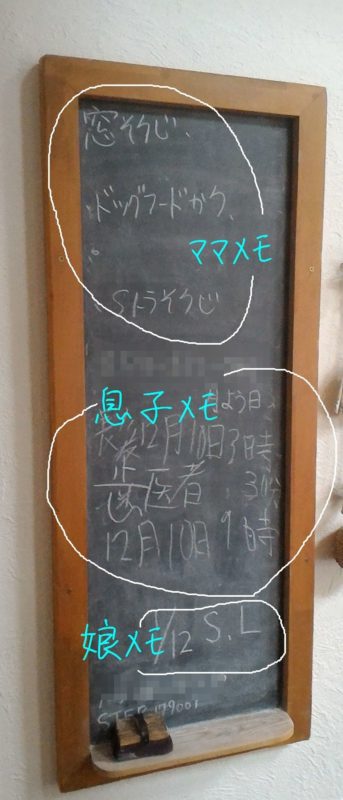 窓そうじ、
ドッグフードかう、
ママメモ
Sトラそうじ
息子メモ
よう日、
12月10日3時
歯医者 30分
12月10日 9時
娘メモ
1/12 S、L